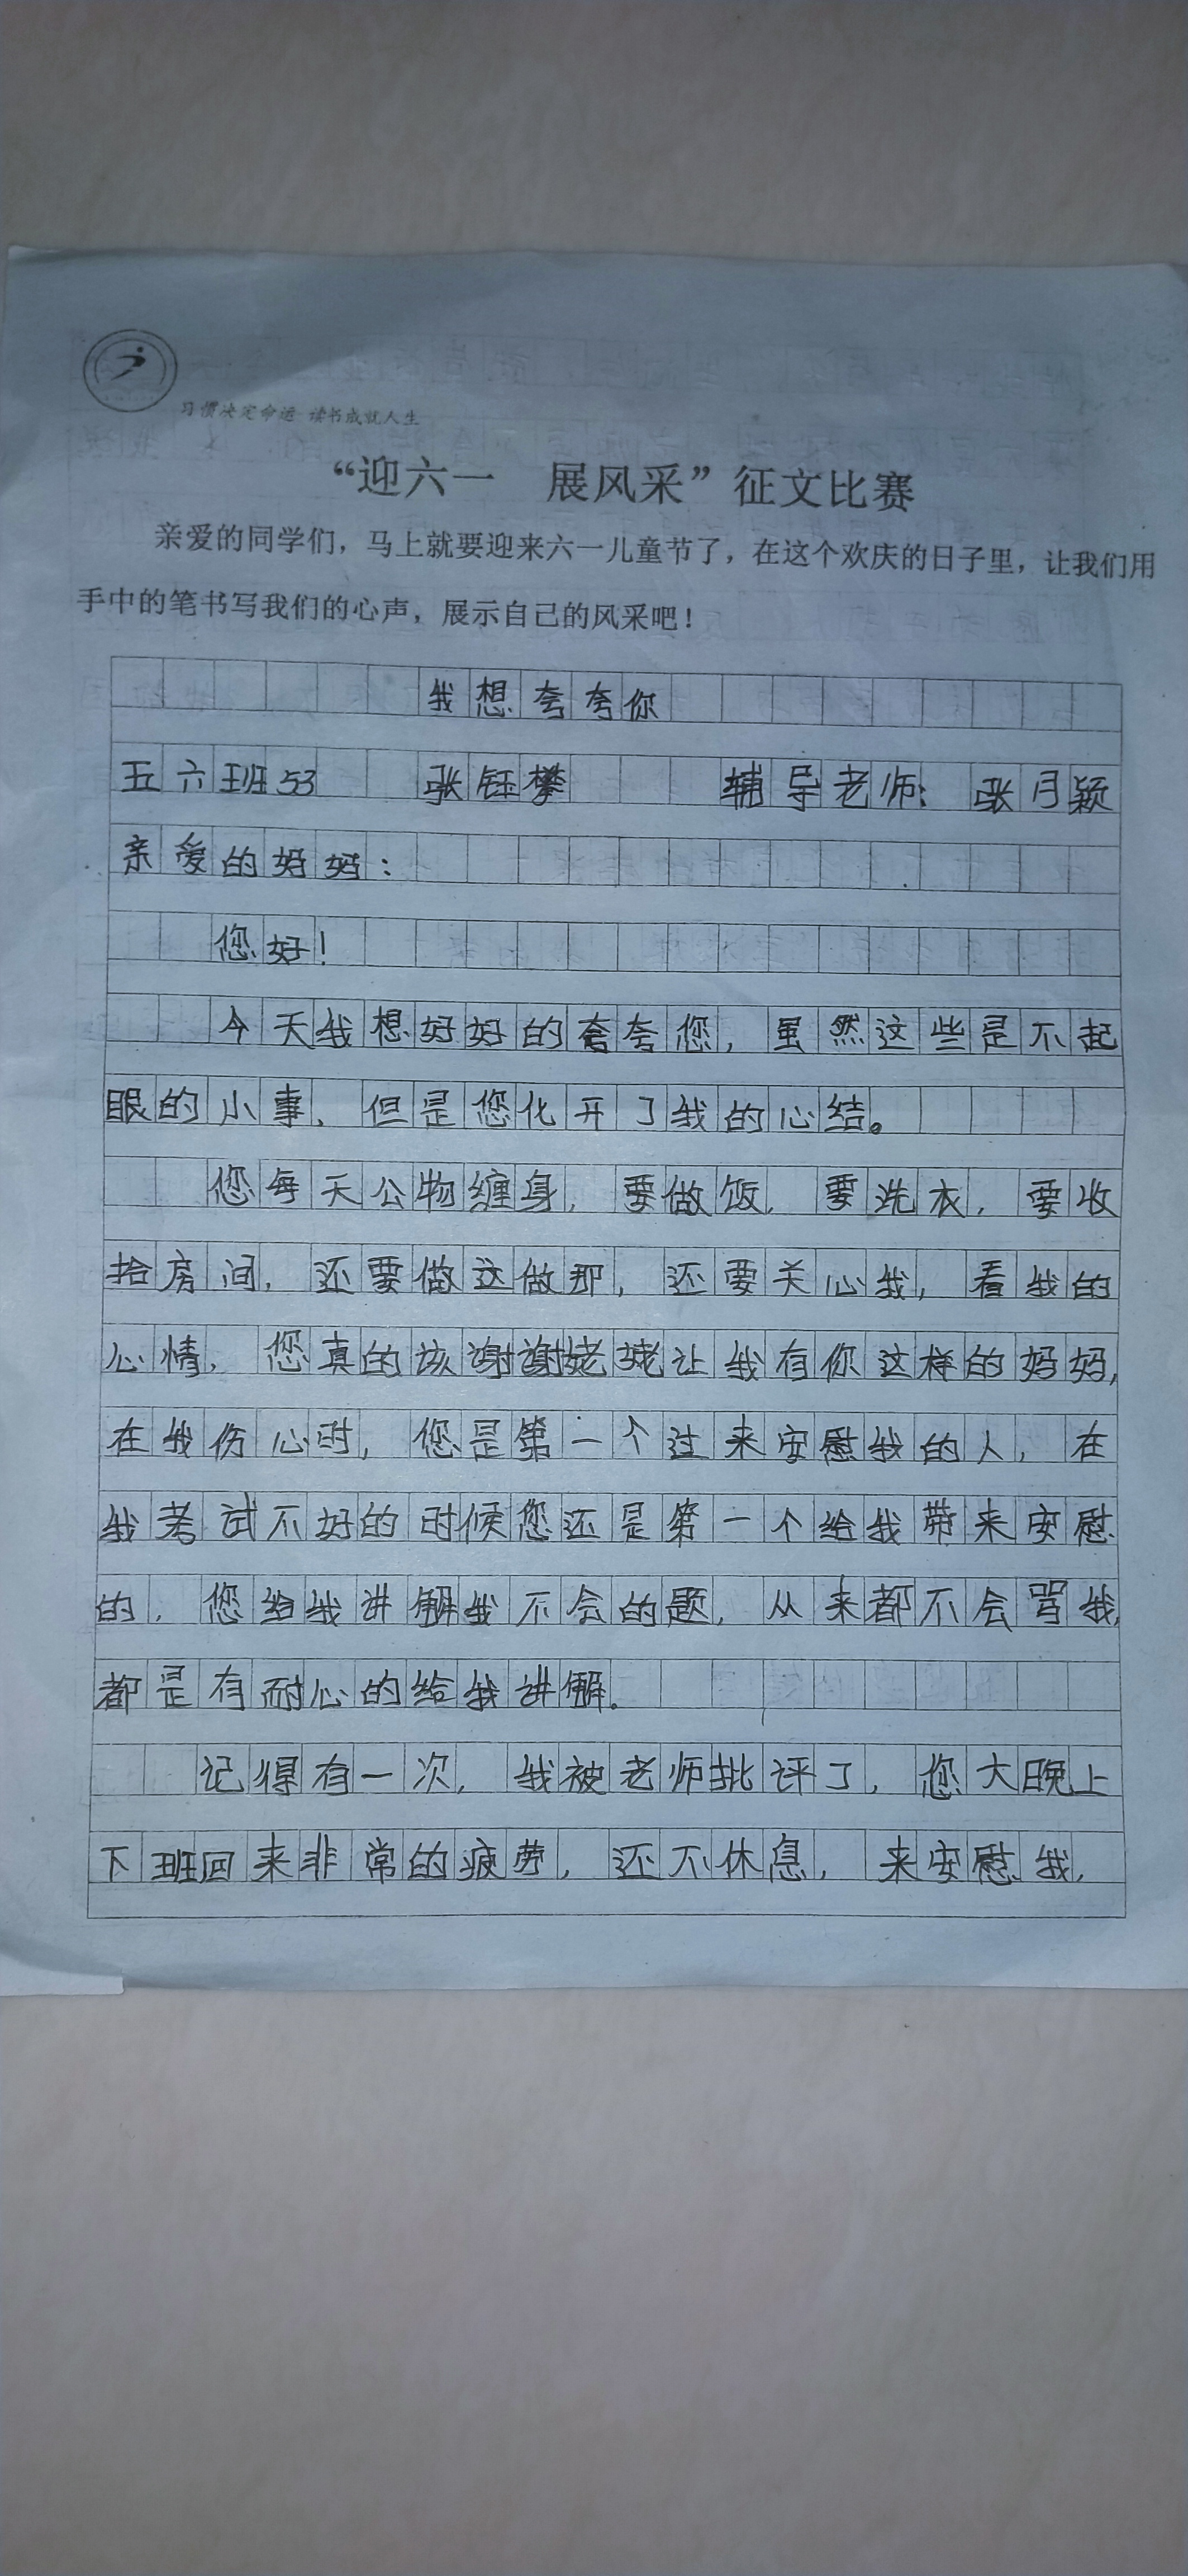 习惯决定命运 读书成就人生
“迎六一 展风采”征文比赛
亲爱的同学们，马上就要迎来六一儿童节了，在这个欢庆的日子里，让我们用
手中的笔书写我们的心声，展示自己的风采吧！
我想夸夸你
五六班53 张钰攀 辅导老师：张月颖
亲爱的妈妈：
您好！
今天我想好好的夸夸您，虽然这些是不起
眼的小事，但是您化开了我的心结。
您每天公物缠身，要做饭，要洗衣，要收
拾房间，还要做这做那，还要关心我，看我的
心情，您真的该谢谢姥姥让我有你这样的妈妈，
在我伤心时，您是第一个过来安慰我的人，在
我考试不好的时候您还是第一个给我带来安慰
的，您给我讲解我不会的题，从来都不会骂我，
都是有耐心的给我讲解。
记得有一次，我被老师批评了，您大晚上
下班回来非常的疲劳，还不休息，来安慰我，